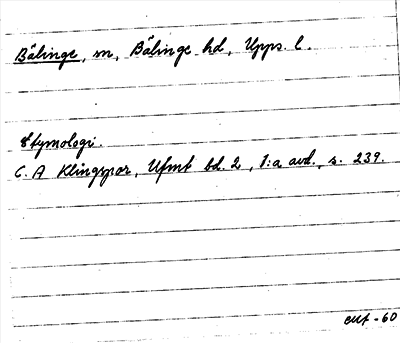 Bälinge, sn, Bälinge hd, Upps. l.
Etymologi.
C. A Klingspor, Ufmt bd. 2, 1:a avd., s. 239.